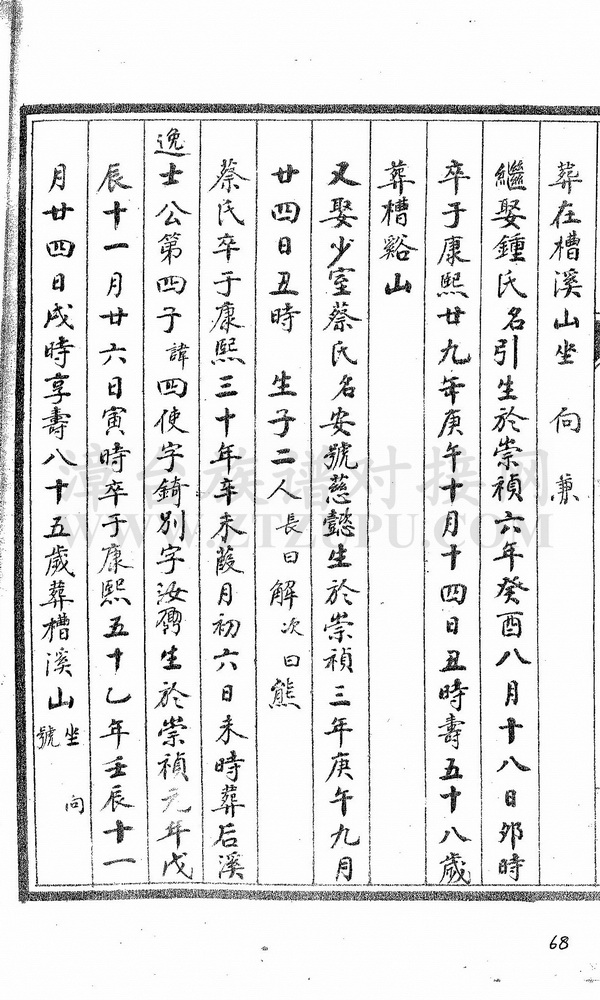 葬在槽溪山坐 向 兼
繼娶鍾氏名引生於崇禎六年癸酉八月十八日夘時
卒于康熙廿九年庚午十月十四日丑時壽五十八歲
葬槽谿山
又娶少室蔡氏名安號慈懿生於崇禎三年庚午九月
廿四日丑時 生子二人長曰解次曰熊
蔡氏卒于康熙三十年辛未葭月初六日未時葬后溪
逸士公第四子諱四使字錡別字汝 生於崇禎元年戊
辰十一月廿六日寅時卒于康熙五十乙年壬辰十一
月廿四日戌時享壽八十五歲葬槽溪山坐 向
號
漳台族谱对接网
www.ZTZUPU.com
68